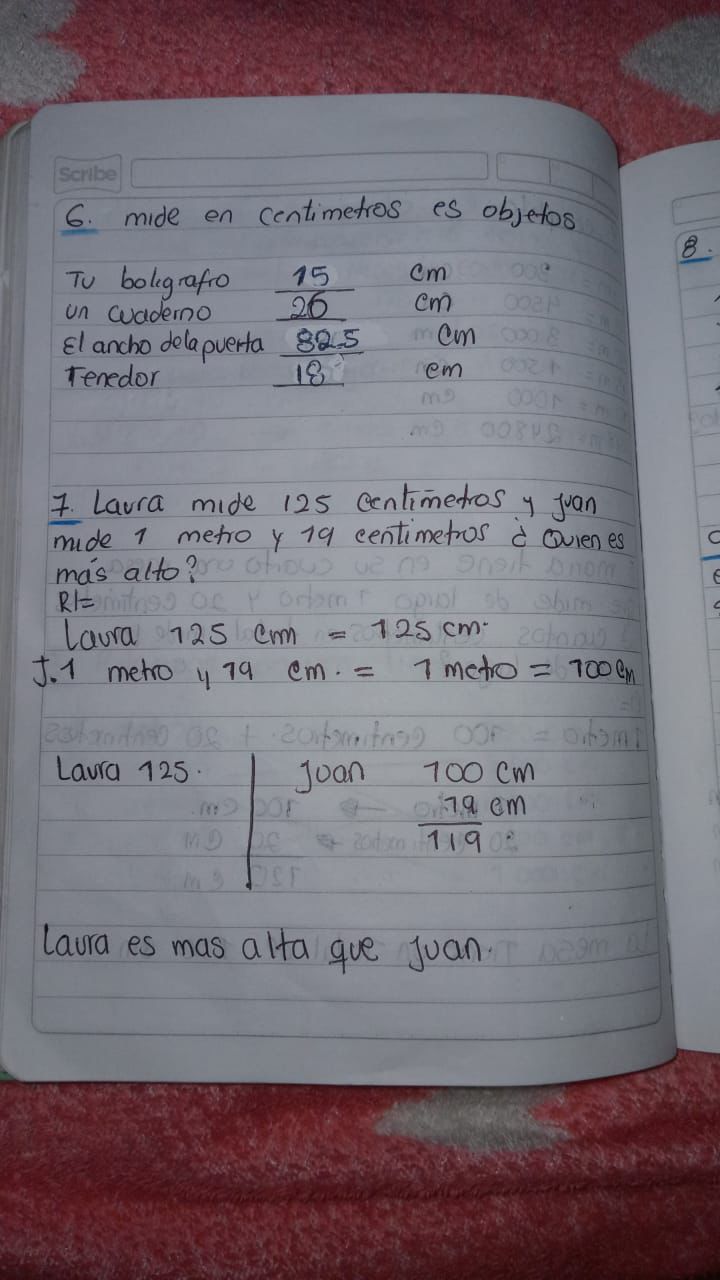 Scribe
6. mide en centimetros es objetos
Tu boligrafo 15 cm
un cuaderno 26 cm
El ancho de la puerta 82.5 cm
Tenedor 18 cm
7. Laura mide 125 centimetros y juan
mide 1 metro y 19 centimetros ¿ Quien es
más alto?
R/=
Laura 125 cm = 125 cm.
J. 1 metro y 19 cm. = 1 metro = 100 cm
Laura 125. juan 100 cm
19 cm
119
Laura es mas alta que juan.
8.